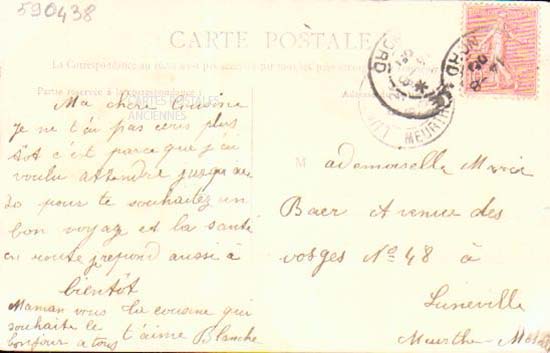 590438
CARTE POSTALE
La Correspondance au recto n'est pas acceptée par tous les pays étrangers
Partie réservée à la correspondance
CARTES POSTALES
ANCIENNES
Ma chère Cousine
Je ne t'ai pas écris plus
tôt c'est parce que j'ai
voulu attendre jusqu'au
20 pour te souhaitez un
bon voyage et la santé
en route répond aussi à
bientôt
Maman vous
souhaite le
bonjour a tous
ta cousine qui
t'aime Blanche
NORD
NORD
MEURTHE
Mademoiselle Maria
Baer Avenue des
vosges No 48 à
Luneville
Meurthe-Mos